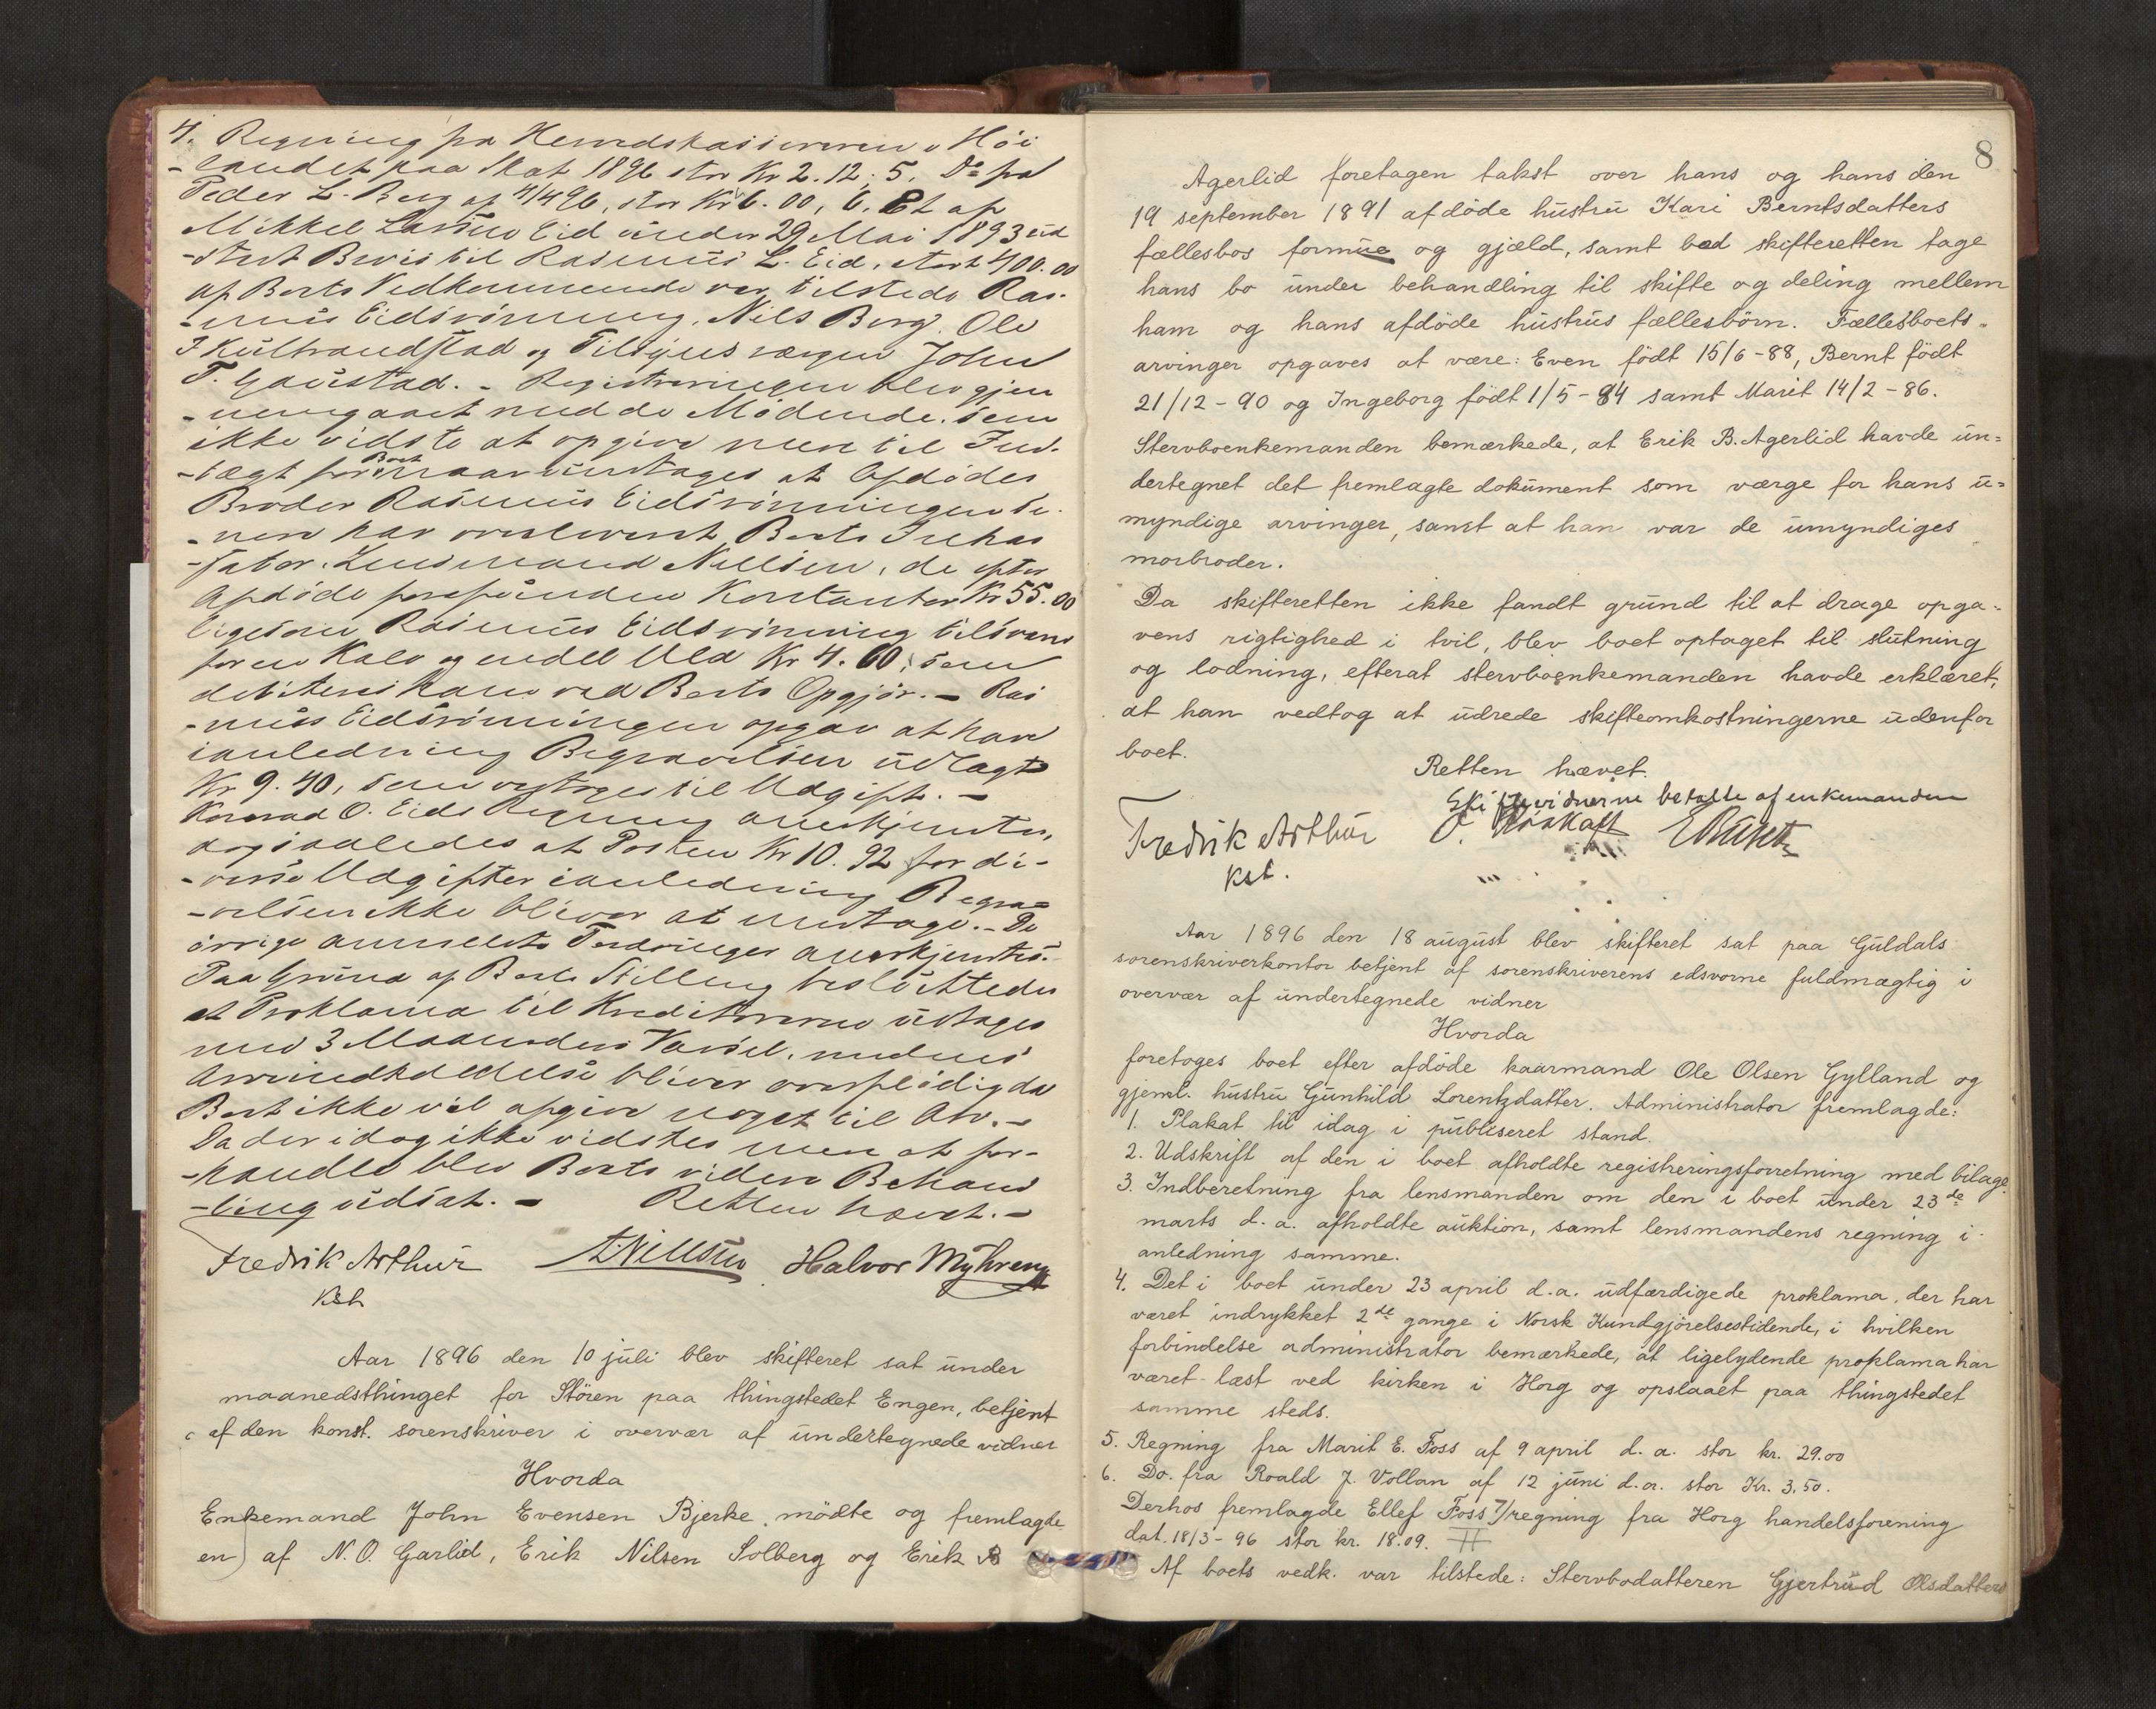 4. Regning fra Herredskassereren i Höi
-landet paa Skat 1896 stor Kr 2.12; 5. Do fra
Peder L. Berg af 4/4 96, stor Kr 6.00, 6. Et af
Mikkel Larsen Eid under 29 Mai 1893 ud
-stedt Bevis til Rasmus L. Eid, stort 400.00
af Boets Vedkommende var tilstede Ras-
-mus Eidsvinning, Nils Berg, Ole
J Kulbrandstad og Tilsynsværgen John
T. Gaustad. - Registreringen blev gjen
-nemgaaet med de Mödende, som
ikke vidste at opgive mere til Ind-
-tægt for Boet naar undtages at Afdödes
Broder Rasmus Eidsvinningen se-
-nere har overleveret Boets Inkas
-sator, Lensmand Nilssen, de efter
Afdöde forefundne Kontanter Kr 55.00
ligesom Rasmus Eidsvinning tilsvarer
for en Kalv og endel Uld Kr 4.60, som
debiteres ham ved Boets Opgjör. - Ras
-mus Eidsvinningen opgav at have
ianledning Begravelsen udlagt
Kr 9.40, som vedtages til Udgift. -
Konrad O. Eids Regning anerkjendtes,
dog saaledes at Posten Kr 10.92 for di-
-verse Udgifter ianledning Begra-
-velsen ikke bliver at medtage. - De
övrige anmeldte Fordringer anerkjendtes.
Paa Grund af Boets Stilling besluttedes
at Proklama til Kreditorerne udtages
med 3 Maaneders Varsel, medens
Arveindkaldelse bliver overflödig da
Boet ikke vil afgive noget til Arv. -
Da der idag ikke vidstes mere at for-
-handle blev Boets videre Behand
-ling udsat. - Retten hævet. -
Fredrik Arthur Nillsen Halvor Myhreng
Kst
Aar 1896 den 10 juli blev skifteret sat under
maanedsthinget for Stören paa thingstedet Engen, betjent
af den konst. sorenskriver i overvær af undertegnede vidner
Hvorda
Enkemand John Evensen Bjerke mödte og fremlagde
en af N. O. Garlid, Erik Nilsen Solberg og Erik B
8
Agerlid foretagen takst over hans og hans den
19 september 1891 afdöde hustru Kari Berntsdatters
fællesbos formue og gjæld, samt bad skifteretten tage
hans bo under behandling til skifte og deling mellem
ham og hans afdöde hustrus fællesbörn. Fællesboets-
arvinger opgaves at være: Even födt 15/6-88, Bernt födt
21/12-90 og Ingeborg födt 1/5-84 samt Marit 14/2-86.
Stervboenkemanden bemærkede, at Erik B. Agerlid havde un=
dertegnet det fremlagte dokument som værge for hans u=
myndige arvinger, samt at han var de umyndiges
morbroder.
Da skifteretten ikke fandt grund til at drage opga-
vens rigtighed i tvil, blev boet optaget til slutning
og lodning, efterat stervboenkemanden havde erklæret,
at han vedtog at udrede skifteomkostningerne udenfor
boet.
Retten hævet.
Skiftevidnerne betalte af enkemanden
Fredrik Arthur
Kst.
Aar 1896 den 18 august blev skifteret sat paa Guldals
sorenskriverkontor betjent af sorenskriverens edsvorne fuldmægtig i
overvær af undertegnede vidner
Hvorda
foretoges boet efter afdöde kaarmand Ole Olsen Gylland og
gjenl. hustru Gunhild Lorentzdatter. Administrator fremlagde:
1. Plakat til idag i publiseret stand.
2. Udskrift af den i boet afholdte registreringsforretning med bilage.
3. Indberetning fra lensmanden om den i boet under 23de
marts d. a. afholdte auktion, samt lensmandens regning i
anledning samme.
4. Det i boet under 23 april d. a. udfærdigede proklama, der har
været indrykket 2de gange i Norsk Kundgjörelsestidende, i hvilken
forbindelse administrator bemærkede, at ligelydende proklama har
været læst ved kirken i Horg og opslaaet paa thingstedet
samme steds.
5. Regning fra Marit E. Foss af 9 april d. a. stor kr. 29.00
6. Do. fra Roald J. Vollan af 12 juni d. a. stor Kr. 3.50.
Derhos fremlagde Ellef Foss 7/ regning fra Horg handelsforening
dat. 18/3-96 stor kr. 18.09.
Af boets vedk. var tilstede: Stervbodatteren Gjertrud Olsdatters